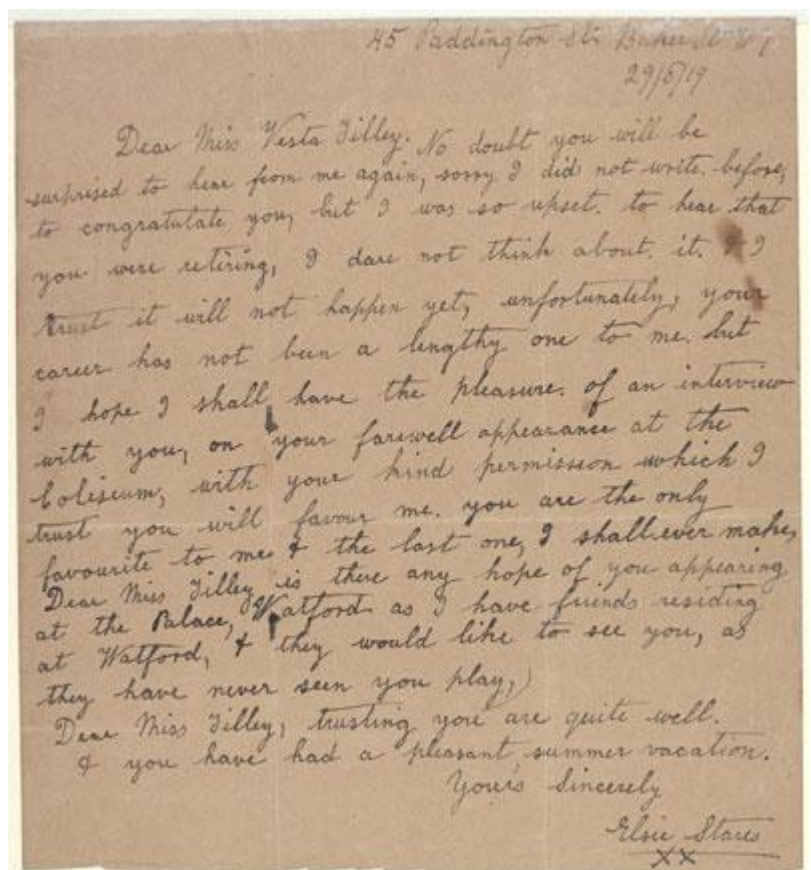 45 Paddington St. Baker St W 1
29/6/19
Dear Miss Vesta Tilley. No doubt you will be
surprised to hear from me again, sorry I did not write. before,
to congratulate you, but I was so upset. to hear that
you were retiring, I dare not think about. it. & I
trust it will not happen yet, unfortunately, your
career has not been a lengthy one to me. but
I hope I shall have the pleasure. of an interview
with you, on your farewell appearance at the
Coliseum, with your kind permission which I
trust you will favour me. you are the only
favourite to me & the last one, I shall ever make,
Dear Miss Tilley is there any hope of you appearing
at the Palace, Watford as I have friends residing
at Watford, & they would like to see you, as
they have never seen you play,)
Dear Miss Tilley, trusting you are quite well.
& you have had a pleasant summer vacation.
Yours Sincerely
Elsie Stares
XX